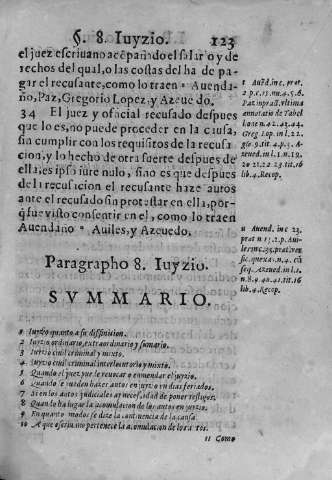 §. 8. Iuyzio. 123
el juez escriuano acõpañado el salario y de
rechos del qual, o las costas del ha de pa-
gar el recusante, como lo traen ᵗ Auenda-
ño, Paz, Gregorio Lopez, y Azeuedo.
34 El juez y oficial recusado despues
que lo es, no puede proceder en la causa,
sin cumplir con los requisitos de la recusa
cion, y lo hecho de otra suerte despues de
ella, es ipso iure nulo, sino es que despues
de la recusacion el recusante haze autos
ante el recusado sin protestar en ella, por-
q̃ fue visto consentir en el, como lo traen
Auendaño ᵘ Auiles, y Azeuedo.
t Auẽd. inc. præt.
2 p. c. 15. nu. 4. 5. 6.
Paz in pract. vltima
annotatio de Tabel
lione n. 42. 43. 44.
Greg. Lop. in l. 22.
Azeued. in l. 1. n. 19.
20 21. 22 23. tit. 16
lib. 4. Recop.
u Auend. inc 23.
præt n 15. 2. p. Aui-
seq. Azeued. in l. 1.
n. 8. 9. 40. 41. tit. 16
lib. 4. Recop.
Paragrapho 8. Iuyzio.
SVMMARIO.
1 Iuyzio quanto a su difinicion.
2 Iuyzio ordinario, extraordinario y sumario.
3 Iuyzio ciuil criminal y mixto.
4 Iuyzio ciuil criminal interlocutorio y mixto.
5 Quando el juez pue. reuocar o enmendar el juyzio.
6 Quando se pueden hazer autos en juyzio en dias feriados.
7 Si en los autos judiciales ay necessidad de poner testigos.
8 Quando ha lugar la acomulacion de los autos en juyzio.
9 En quantos modos se dize la continencia de la causa.
10 A que oficio pertenece la acomulacion de los autos.
11 Como